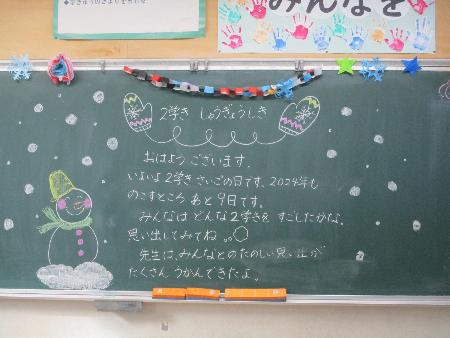 みんなを
2学き しゅうぎょうしき
おはようございます。
いよいよ2学き さいごの日です。2024年も
のこすところ あと9日です。
みんなは どんな2学きを すごしたかな。
思い出してみてね。。○
先生は、みんなとのたのしい思い出が
たくさん うかんできたよ。